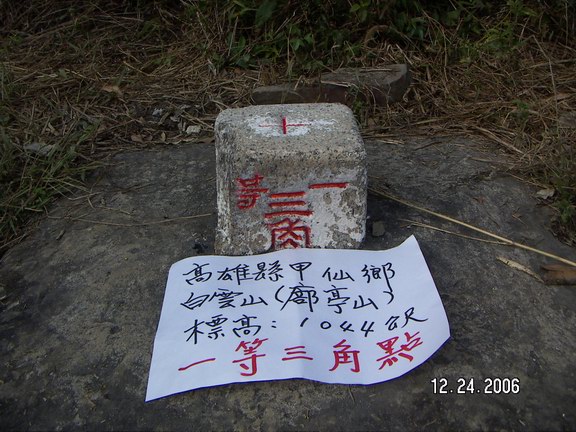 十
一等
三
角
高雄縣甲仙鄉
白雲山(廓亭山)
標高:1044公尺
一等三角點
12.24.2006